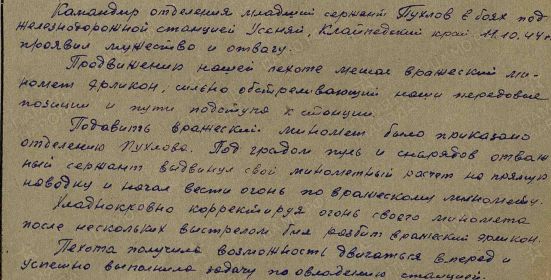 Командир отделения младший сержант Пухлов в боях под
железнодорожной станцией Усеняй, Клайпедский край 11.10.44г
проявил мужество и отвагу.
Продвижению нашей пехоте мешал вражеский ми-
номет эрликон, сильно обстреливающий наши передовые
позиции и пути подступа к станции.
Подавить вражеский миномет было приказано
отделению Пухлова. Под градом пуль и снарядов отваж
ный сержант выдвинул свой минометный расчет на прямую
наводку и начал вести огонь по вражескому миномету.
Хладнокровно корректируя огонь своего миномета
после нескольких выстрелов был разбит вражеский эрликон.
Пехота получила возможность двигаться вперед и
успешно выполнила задачу по овладению станцией.